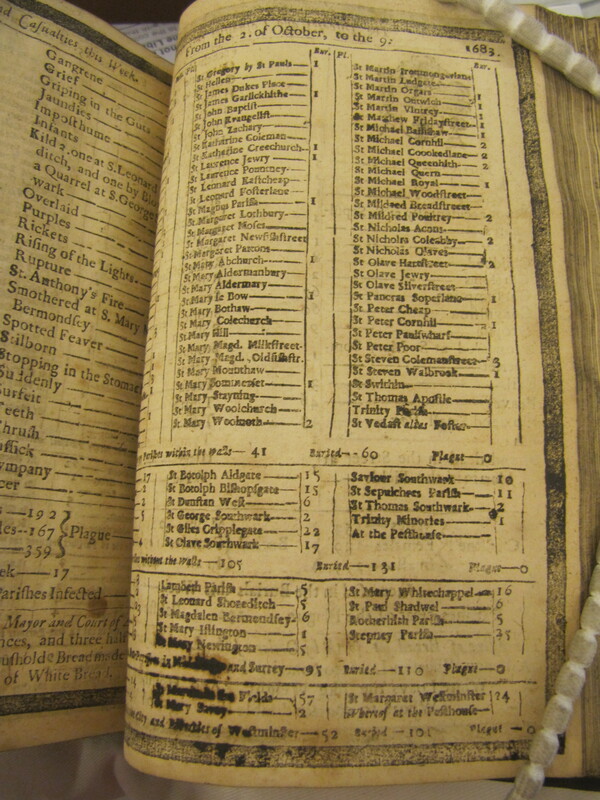 Casualties this Week.
Gangrene
Grief
Griping in the Guts
Jaundies
Imposthume
Infants
Kild 2. one at S. Leonard
ditch, and one by
a Quarrel at S. George
wark
Overlaid
Purples
Rickets
Rising of the Lights
Rupture
St. Anthony's Fire
Smothered at S. Mary
Bermondsey
Spotted Feaver
Stilborn
Stopping in the Stomac
Suddenly
Surfeit
Teeth
Thrush
Tissick
Tympany
192
167
359
Plague
17
Parishes Infected
Mayor and Court of
nces, and three half
Bread made
of White Bread.
From the 2. of October, to the 9: 1683.
Bur. Pl.
St Gregory by St Pauls 1
St Hellen
St James Dukes Place 1
St James Garlickhithe 1
St John Baptist
St John Evangelist
St John Zachary
St Katharine Coleman
St Katherine Creechurch 1
St Laurence Jewry 1
St Laurence Pountney
St Leonard Eastcheap
St Leonard Fosterlane
St Magnus Parish 1
St Margaret Lothbury
St Margaret Moses
St Margaret Newfishstreet
St Margaret Pattons
St Mary Abchurch 1
St Mary Aldermanbury
St Mary Aldermary
St Mary le Bow 1
St Mary Bothaw
St Mary Colechurch
St Mary Hill
St Mary Magd. Milkstreet
St Mary Magd. Oldfishstr.
St Mary Mounthaw
St Mary Sommerset 1
St Mary Stayning
St Mary Woolchurch
St Mary Woolnoth 2
Bur.
St Martin Ironmongerlane
St Martin Ludgate
St Martin Orgars 1
St Martin Outwich
St Martin Vintrey 1
St Matthew Fridaystreet
St Michael Bassishaw 1
St Michael Cornhil 2
St Michael Crookedlane 2
St Michael Queenhith 2
St Michael Quern
St Michael Royal 1
St Michael Woodstreet
St Mildred Breadstreet
St Mildred Poultrey 2
St Nicholas Acons
St Nicholas Coleabby 2
St Nicholas Olaves
St Olave Hartstreet
St Olave Jewry
St Olave Silverstreet
St Pancras Soperlane 1
St Peter Cheap
St Peter Cornhil 1
St Peter Paulswharf
St Peter Poor
St Steven Colemanstreet 3
St Steven Walbrook 1
St Swithin
St Thomas Apostle
Trinity Parish
St Vedast alias Foster
Parishes within the walls 41 Buried 60 Plague 0
St Botolph Aldgate 15
St Botolph Bishopsgate 15
St Dunstan West 6
St George Southwark 2
St Giles Cripplegate 22
St Olave Southwark 17
Saviour Southwark 10
St Sepulchres Parish 11
St Thomas Southwark 2
Trinity Minories 1
At the Pesthouse
without the Walls 105 Buried 131 Plague 0
Lambeth Parish 5
St Leonard Shoreditch 5
St Magdalen Bermondsey 6
St Mary Islington 1
St Mary Newington 5
St Mary Whitechappel 16
St Paul Shadwel 6
Rotherhith Parish 5
Stepney Parish
and Surrey 95 Buried 110 Plague 0
Fields 57
St Mary Savoy 2
St Margaret Westminster 24
Whereof at the Pesthouse
City and Liberties of Westminster 52 Buried 101 Plague 0